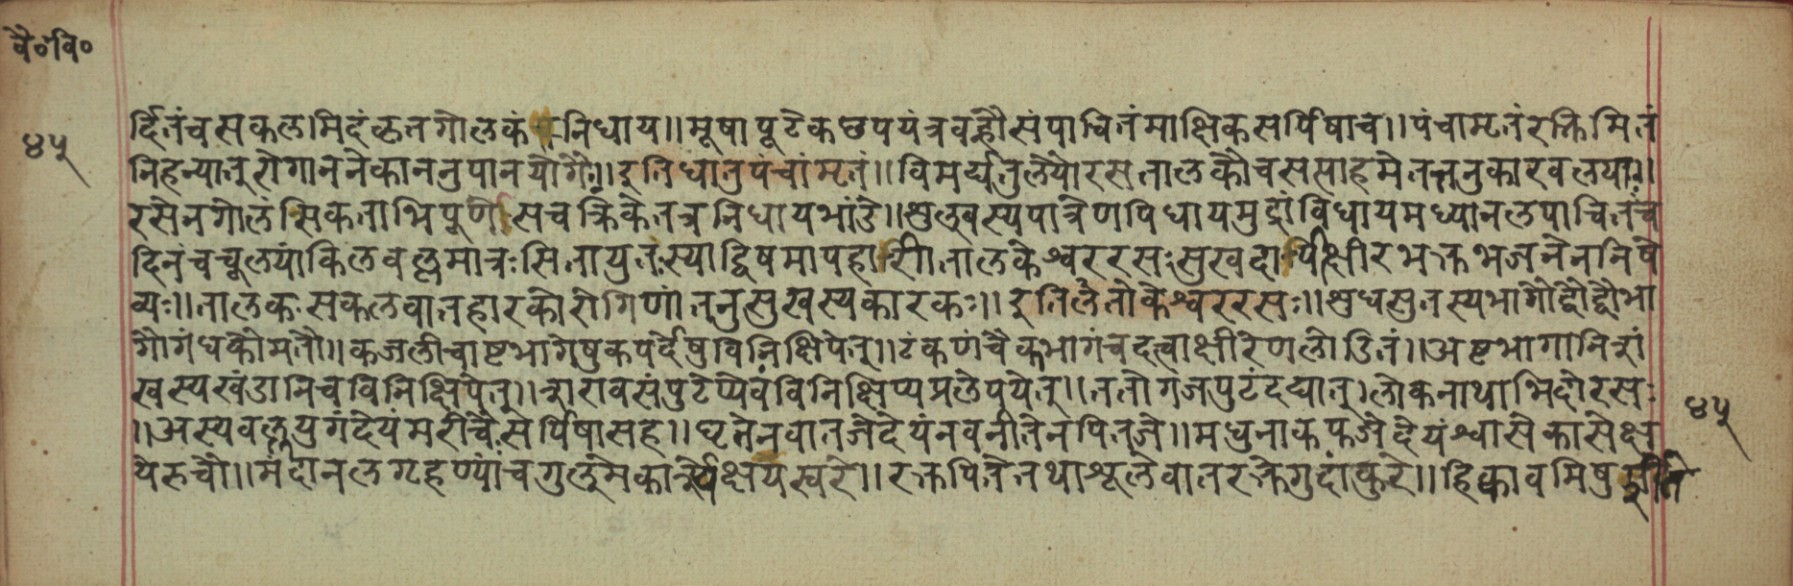 वै०वि०
४५
र्द्दितंच सकलमिदं कृतगोलकं निधाय॥ मूषापूटेकछपयंत्रवह्नौ संपाचितं माक्षिकसर्पिषाच॥ पंचामृतं रक्तिमितं
निहन्यात् रोगाननेकाननुपानयोगैः॥ इति धातुपंचांमृतं॥ विमर्द्य तुलेयो रसतालकौ च सप्ताहमेतत्तनुकारवलया॥
रसेन गोलं सिकताभिपूर्णे सचक्रिके तत्र निधाय भांडे॥ शुलुबस्य पात्रेण पिधाय मुद्रां विधाय मध्यानलपाचितं च
दिनं च चूलयां किल वल्लमात्रः सितायुतः स्याद्विषमापहारी तालकेश्वररसः सुखदापि क्षीरभक्तभजनेन निषे
व्यः॥ तालकः सकलवातहारको रोगिणां तनुसुखस्य कारकः॥ इति लेतोकेश्वररसः॥ शुधसुतस्य भागौ द्वौ द्वौ भा
गौ गंधको मतौ॥ कजलीचाष्टभागेषु कपर्देषु विनिक्षिपेत्॥ टंकणं चैकभागं च दत्वा क्षीरेण लोडितं॥ अष्टभागानि शं
खस्य खंडानि च विनिक्षिपेत्॥ शरावसंपुटेप्येवं विनिक्षिप्य प्रलेपयेत्॥ ततो गजपुटं दद्यात्। लोकनाथाभिदो रसः
॥अस्य वल्लयुगं देयं मरीचैः सर्पिषा सह॥ घृतेन वातजे देयं नवनीतेन पितजे॥ मधुना कफजे देयं श्वासे कासे क्ष
ये रुचौ॥ मंदानलगृहण्यां च गुल्मे कार्श्ये क्षयस्वरे॥ रक्तपिते तथा शूले वातरक्ते गुदांकुरे॥ हिकावमिषु इति
४५